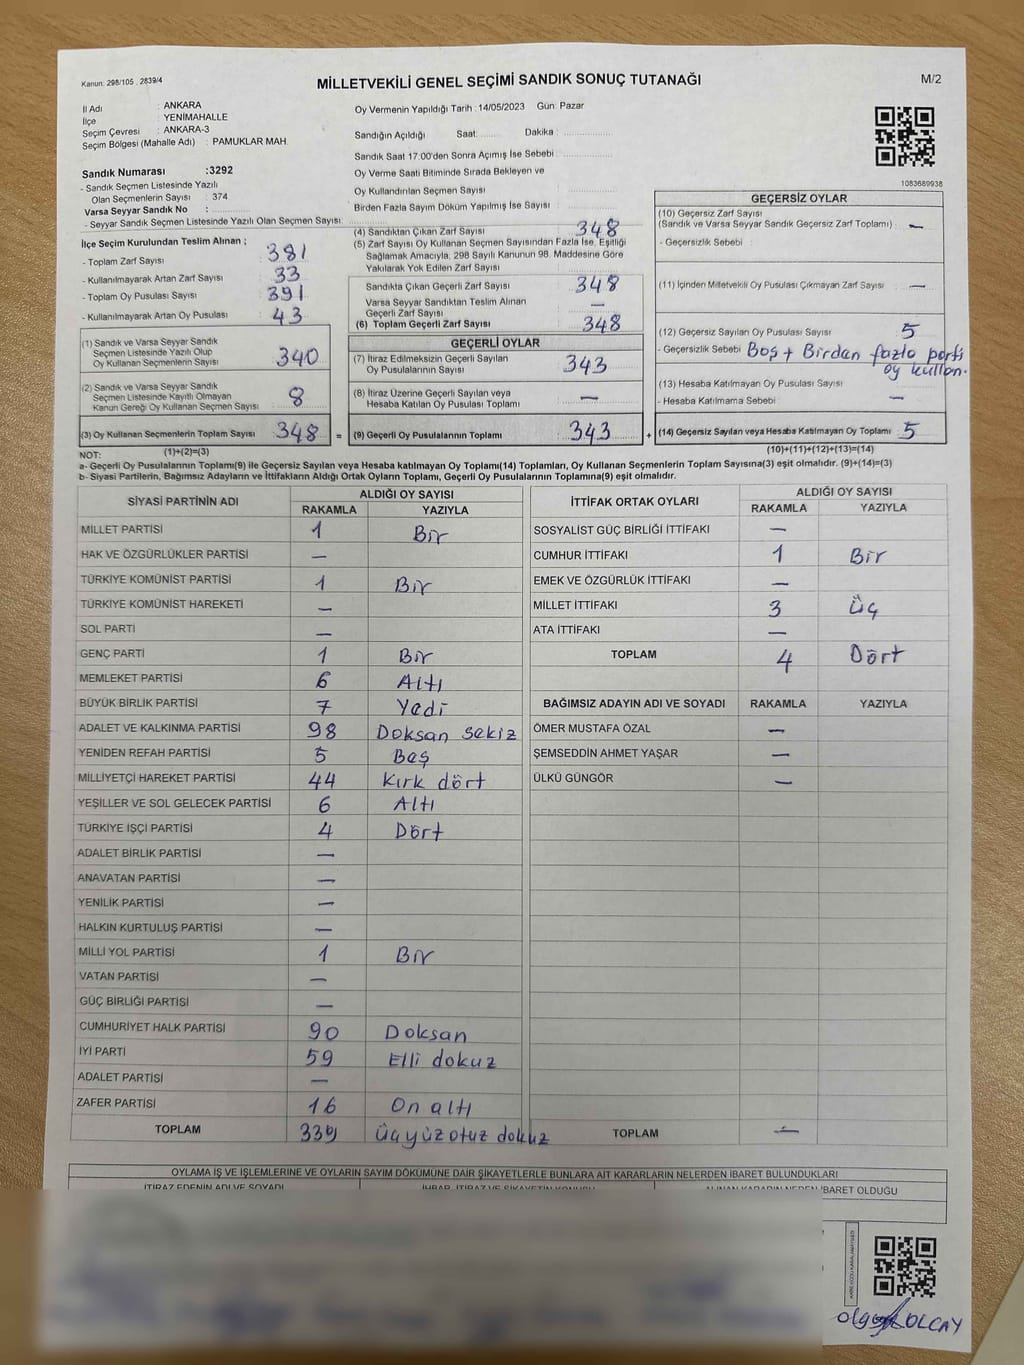 Kanun: 298/105 , 2839/4
MİLLETVEKİLİ GENEL SEÇİMİ SANDIK SONUÇ TUTANAĞI
M/2
İl Adı : ANKARA
İlçe : YENİMAHALLE
Seçim Çevresi : ANKARA-3
Seçim Bölgesi (Mahalle Adı) : PAMUKLAR MAH.
Oy Vermenin Yapıldığı Tarih : 14/05/2023 Gün: Pazar
Sandığın Açıldığı Saat: Dakika :
Sandık Saat 17.00'den Sonra Açılmış İse Sebebi :
Oy Verme Saati Bitiminde Sırada Bekleyen ve
Oy Kullandırılan Seçmen Sayısı
Birden Fazla Sayım Döküm Yapılmış İse Sayısı :
1083689938
Sandık Numarası :3292
- Sandık Seçmen Listesinde Yazılı
Olan Seçmenlerin Sayısı : 374
Varsa Seyyar Sandık No :
- Seyyar Sandık Seçmen Listesinde Yazılı Olan Seçmen Sayısı:
İlçe Seçim Kurulundan Teslim Alınan ;
- Toplam Zarf Sayısı 381
- Kullanılmayarak Artan Zarf Sayısı 33
- Toplam Oy Pusulası Sayısı 391
- Kullanılmayarak Artan Oy Pusulası 43
(1) Sandık ve Varsa Seyyar Sandık
Seçmen Listesinde Yazılı Olup
Oy Kullanan Seçmenlerin Sayısı 340
(2) Sandık ve Varsa Seyyar Sandık
Seçmen Listesinde Kayıtlı Olmayan
Kanun Gereği Oy Kullanan Seçmen Sayısı 8
(3) Oy Kullanan Seçmenlerin Toplam Sayısı 348 =
(1)+(2)=(3)
(4) Sandıktan Çıkan Zarf Sayısı 348
(5) Zarf Sayısı Oy Kullanan Seçmen Sayısından Fazla İse, Eşitliği
Sağlamak Amacıyla, 298 Sayılı Kanunun 98. Maddesine Göre
Yakılarak Yok Edilen Zarf Sayısı
Sandıkta Çıkan Geçerli Zarf Sayısı 348
Varsa Seyyar Sandıktan Teslim Alınan
Geçerli Zarf Sayısı —
(6) Toplam Geçerli Zarf Sayısı 348
GEÇERLİ OYLAR
(7) İtiraz Edilmeksizin Geçerli Sayılan
Oy Pusulalarının Sayısı 343
(8) İtiraz Üzerine Geçerli Sayılan veya
Hesaba Katılan Oy Pusulası Toplamı —
(9) Geçerli Oy Pusulalarının Toplamı 343 +
GEÇERSİZ OYLAR
(10) Geçersiz Zarf Sayısı
(Sandık ve Varsa Seyyar Sandık Geçersiz Zarf Toplamı) : —
- Geçersizlik Sebebi :
(11) İçinden Milletvekili Oy Pusulası Çıkmayan Zarf Sayısı : —
(12) Geçersiz Sayılan Oy Pusulası Sayısı 5
- Geçersizlik Sebebi Boş + Birdan fazla parti
oy kullan.
(13) Hesaba Katılmayan Oy Pusulası Sayısı
- Hesaba Katılmama Sebebi : —
(14) Geçersiz Sayılan veya Hesaba Katılmayan Oy Toplamı 5
(10)+(11)+(12)+(13)=(14)
NOT:
a- Geçerli Oy Pusulalarının Toplamı(9) ile Geçersiz Sayılan veya Hesaba katılmayan Oy Toplamı(14) Toplamları, Oy Kullanan Seçmenlerin Toplam Sayısına(3) eşit olmalıdır. (9)+(14)=(3)
b- Siyasi Partilerin, Bağımsız Adayların ve İttifakların Aldığı Ortak Oyların Toplamı, Geçerli Oy Pusulalarının Toplamına(9) eşit olmalıdır.
SİYASİ PARTİNİN ADI ALDIĞI OY SAYISI
RAKAMLA YAZIYLA
MİLLET PARTİSİ 1 Bir
HAK VE ÖZGÜRLÜKLER PARTİSİ —
TÜRKİYE KOMÜNİST PARTİSİ 1 Bir
TÜRKİYE KOMÜNİST HAREKETİ —
SOL PARTİ —
GENÇ PARTİ 1 Bir
MEMLEKET PARTİSİ 6 Altı
BÜYÜK BİRLİK PARTİSİ 7 Yedi
ADALET VE KALKINMA PARTİSİ 98 Doksan sekiz
YENİDEN REFAH PARTİSİ 5 Beş
MİLLİYETÇİ HAREKET PARTİSİ 44 Kırk dört
YEŞİLLER VE SOL GELECEK PARTİSİ 6 Altı
TÜRKİYE İŞÇİ PARTİSİ 4 Dört
ADALET BİRLİK PARTİSİ —
ANAVATAN PARTİSİ —
YENİLİK PARTİSİ —
HALKIN KURTULUŞ PARTİSİ —
MİLLİ YOL PARTİSİ 1 Bir
VATAN PARTİSİ —
GÜÇ BİRLİĞİ PARTİSİ —
CUMHURİYET HALK PARTİSİ 90 Doksan
İYİ PARTİ 59 Elli dokuz
ADALET PARTİSİ —
ZAFER PARTİSİ 16 On altı
TOPLAM 339 üçyüz otuz dokuz
İTTİFAK ORTAK OYLARI ALDIĞI OY SAYISI
RAKAMLA YAZIYLA
SOSYALİST GÜÇ BİRLİĞİ İTTİFAKI —
CUMHUR İTTİFAKI 1 Bir
EMEK VE ÖZGÜRLÜK İTTİFAKI —
MİLLET İTTİFAKI 3 üç
ATA İTTİFAKI —
TOPLAM 4 Dört
BAĞIMSIZ ADAYIN ADI VE SOYADI RAKAMLA YAZIYLA
ÖMER MUSTAFA ÖZAL —
ŞEMSEDDİN AHMET YAŞAR —
ÜLKÜ GÜNGÖR —
TOPLAM —
OYLAMA İŞ VE İŞLEMLERİNE VE OYLARIN SAYIM DÖKÜMÜNE DAİR ŞİKAYETLERLE BUNLARA AİT KARARLARIN NELERDEN İBARET BULUNDUKLARI
İTİRAZ EDENİN ADI VE SOYADI İHBAR, İTİRAZ VE ŞİKAYETİN KONUSU ALINAN KARARIN NEDEN İBARET OLDUĞU
OLCAY